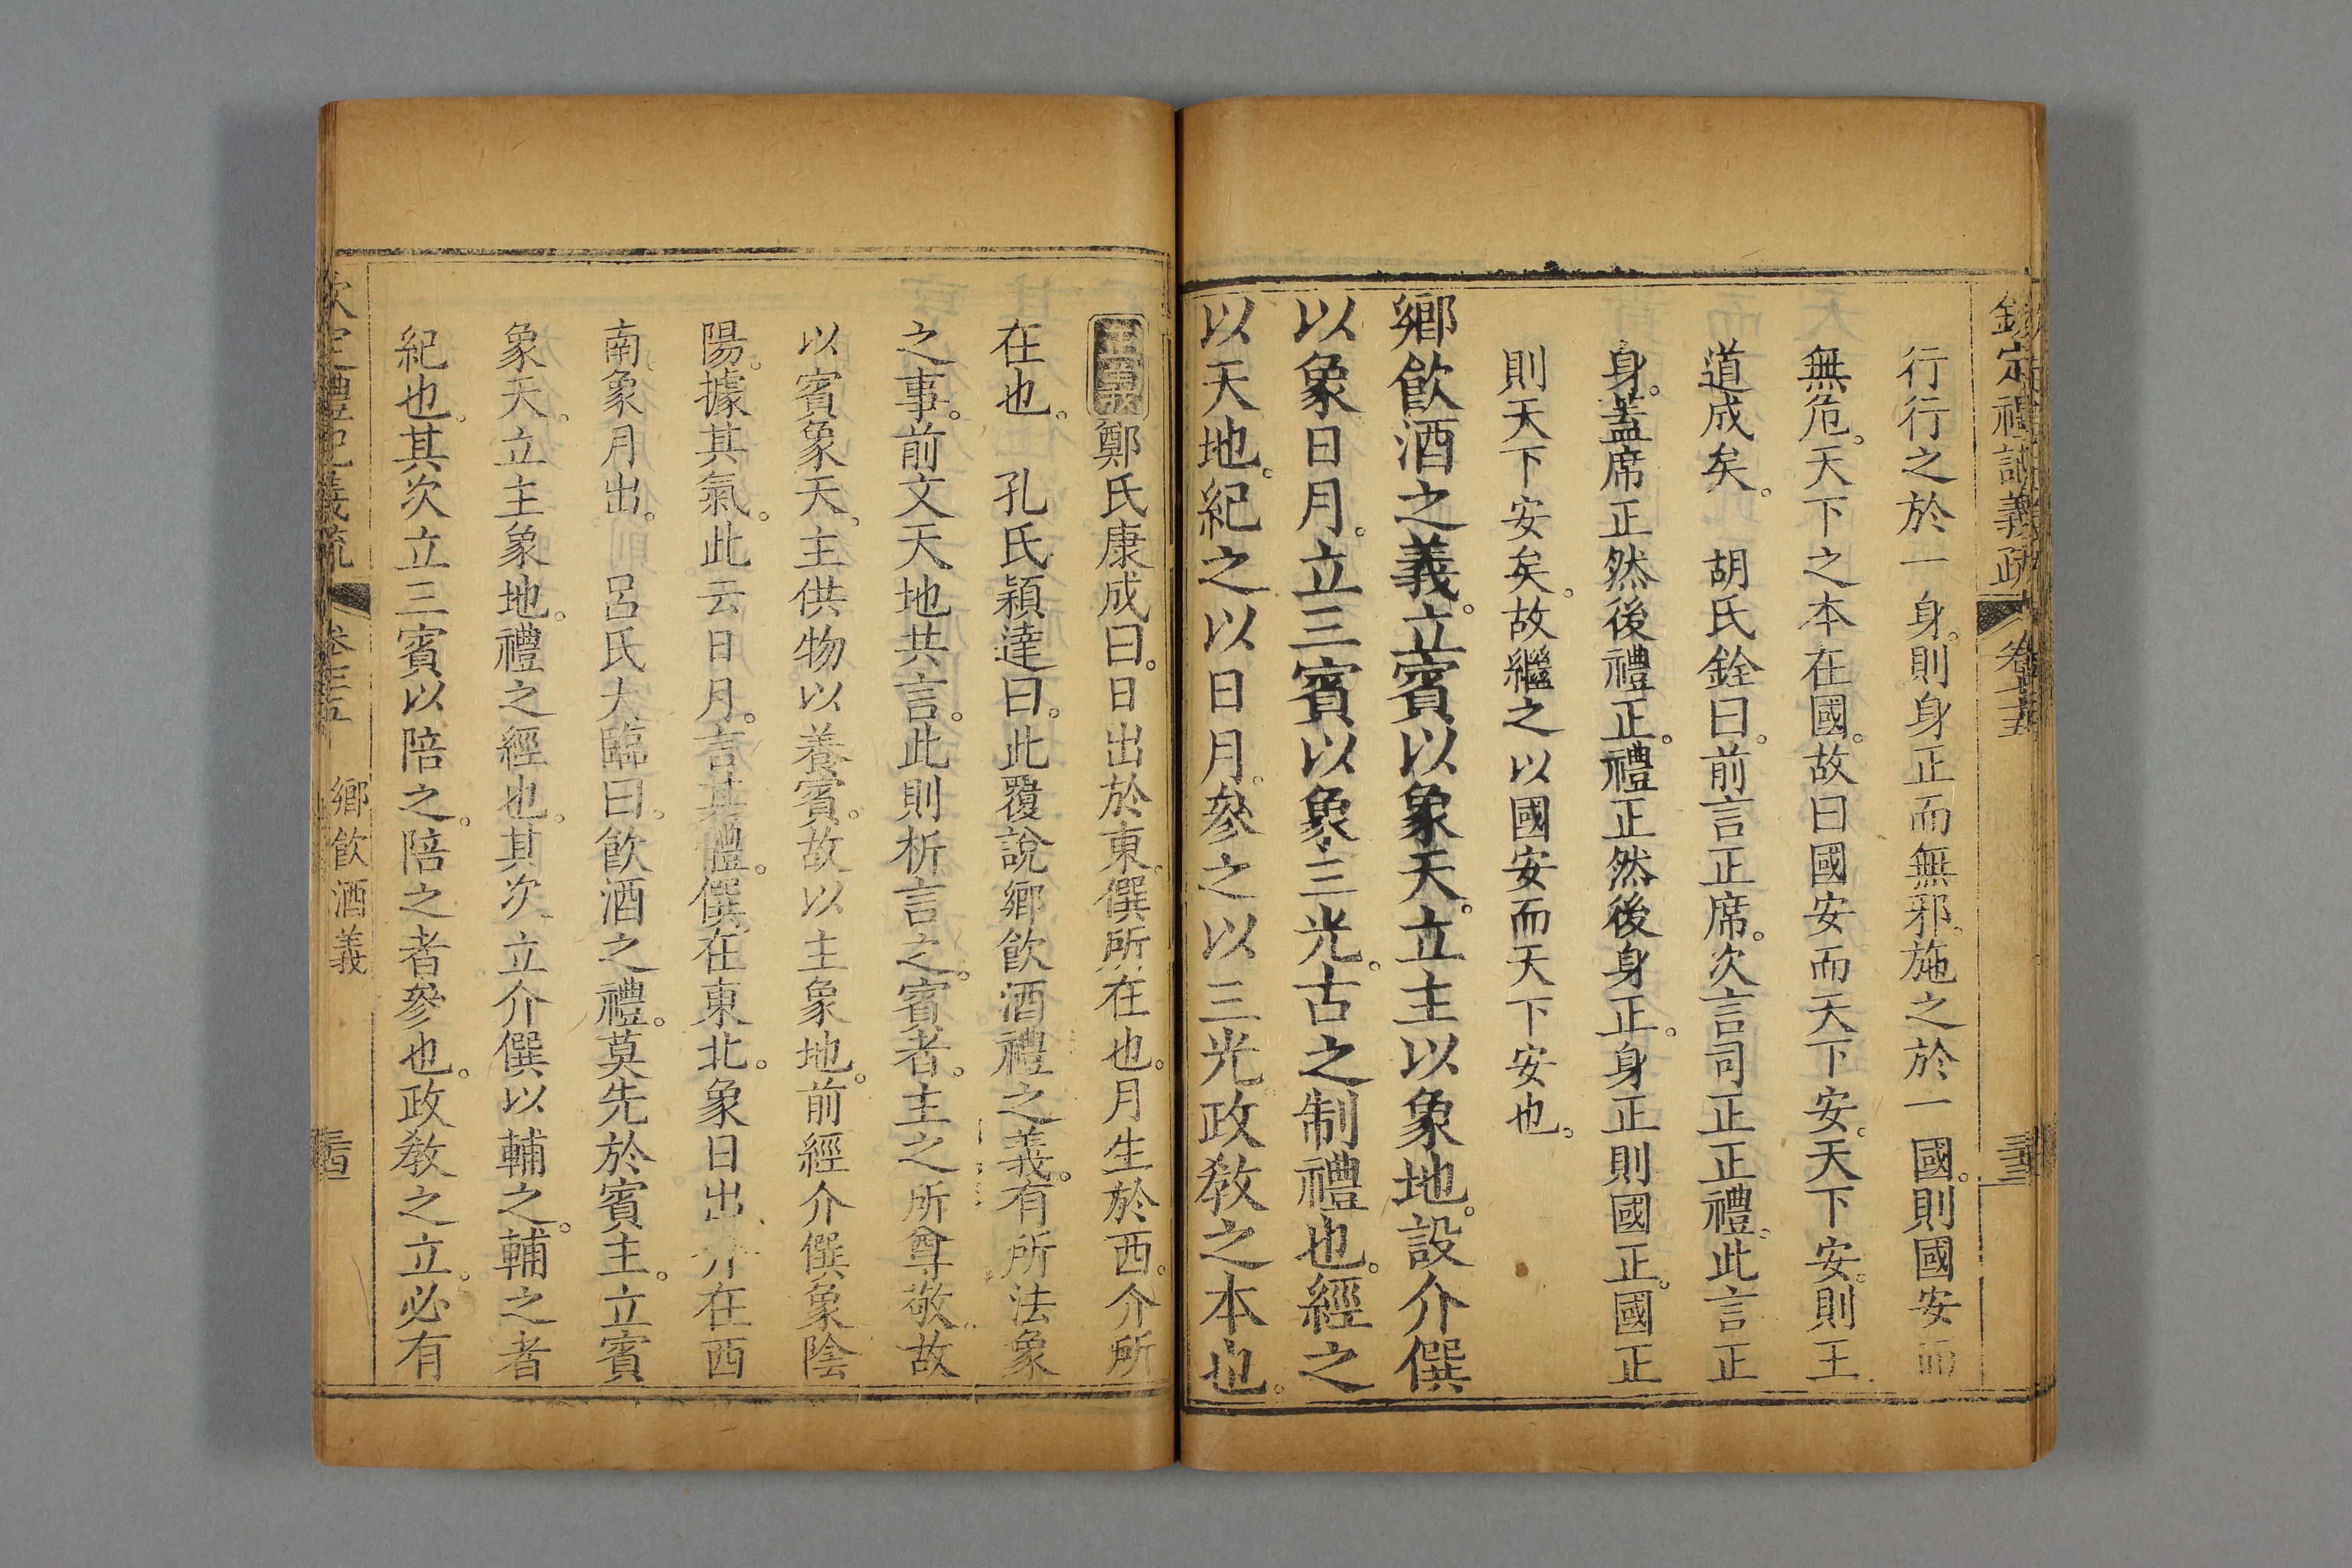 欽定禮記義疏 卷七十五 三十三
行行之於一身。則身正而無邪。施之於一國。則國安而
無危。天下之本在國。故曰國安而天下安。天下安。則王
道成矣。 胡氏銓曰。前言正席。次言司正正禮。此言正
身。蓋席正然後禮正。禮正然後身正。身正則國正。國正
則天下安矣。故繼之以國安而天下安也。
鄉飲酒之義。立賓以象天。立主以象地。設介僎
以象日月。立三賓以象三光。古之制禮也。經之
以天地。紀之以日月。參之以三光。政教之本也。
鄭氏康成曰。日出於東。僎所在也。月生於西。介所
在也。 孔氏穎達曰。此覆說鄉飲酒禮之義。有所法象
之事。前文天地共言。此則析言之。賓者。主之所尊敬。故
以賓象天。主供物以養賓。故以主象地。前經介僎象陰
陽。據其氣。此云日月。言其體。僎在東北。象日出、介在西
南、象月出。 呂氏大臨曰。飲酒之禮。莫先於賓主。立賓
象天。立主象地。禮之經也。其次立介僎以輔之。輔之者
紀也。其次立三賓以陪之。陪之者參也。政教之立。必有
欽定禮記義疏 卷七十五 鄉飲酒義